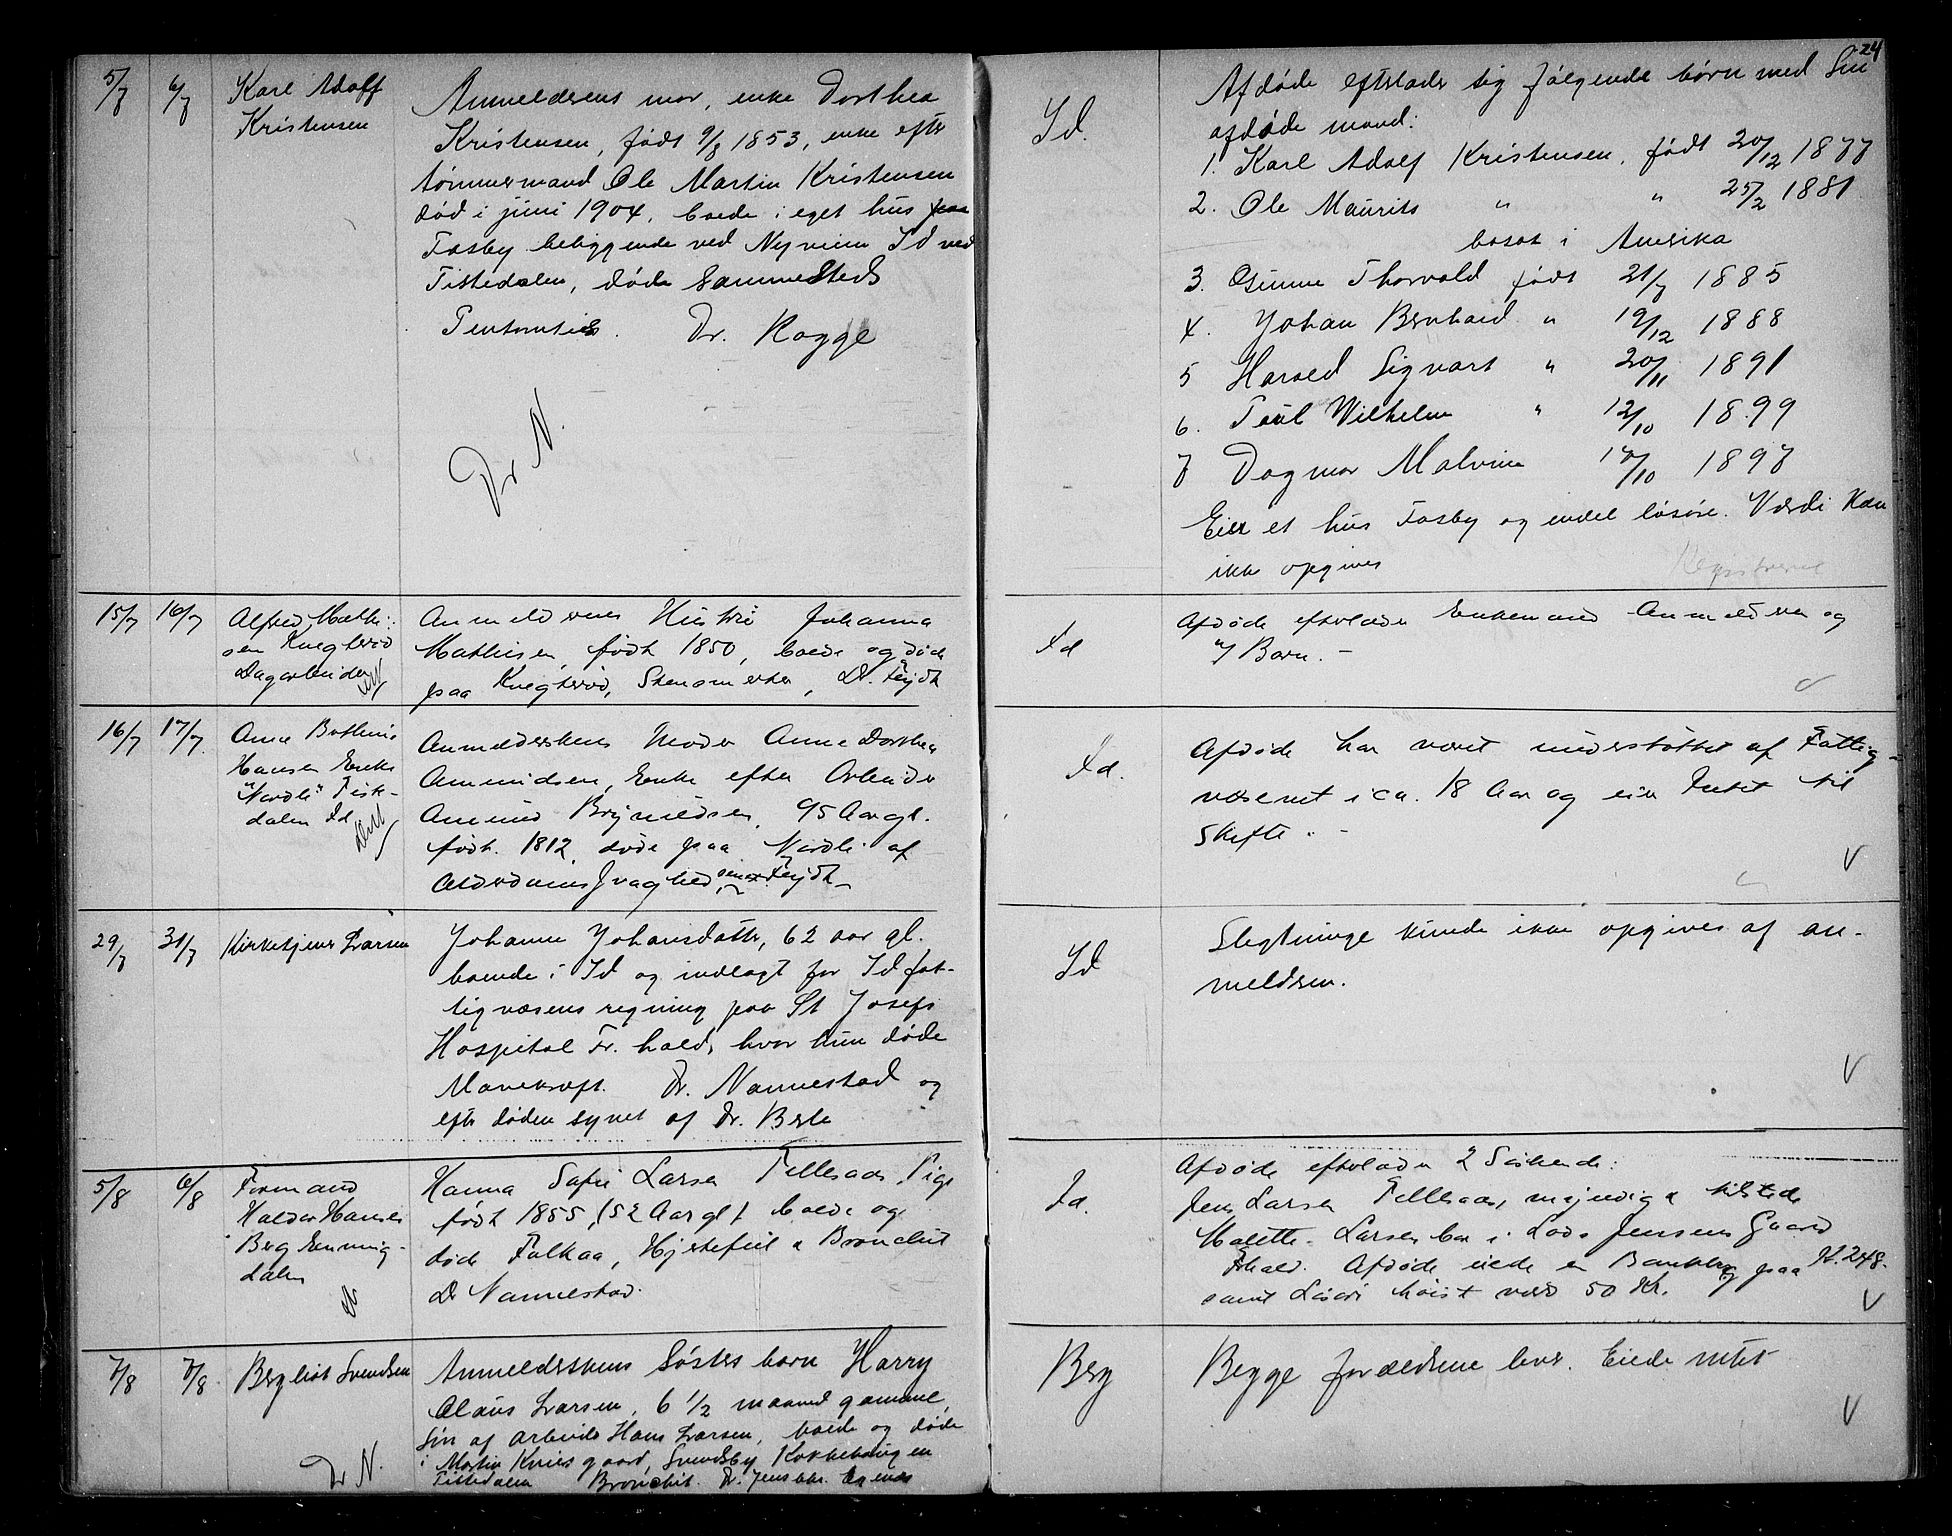 24
5/7 6/7 Karl Adolf
Kristensen
Anmelderens mor, enke Dorthea
Kristensen, født 9/8 1853, enke efter
tømmermand Ole Martin Kristensen
død i juni 1904, boede i eget hus paa
Fosby beliggende ved Nyveien Id ved
Tistedalen, døde sammesteds
Dr. Rogge
Dr N.
Id.
Afdøde efterlader sig følgende børn med sin
afdøde mand:
1. Karl Adolf Kristensen, født 20/12 1877
2. Ole Maurits " " 25/2 1881
bosat i Amerika
3. Gunne Thorvald født 21/7 1885
4. Johan Bernhard " 19/12 1888
5 Harald Sigvart " 20/11 1891
6. Paul Wilhelm " 12/10 1899
7 Dagmar Malvine 17/10 1897
Eier et hus Fosby og endel løsøre. Værdi kan
ikke opgives
Registreret
15/7 16/7 Alfred Mathi-
sen Knegterød
Dagarbeider
Anmelderens Hustru Johanna
Mathisen, født 1850, boede og døde
paa Knegterød, Dr. Feydt
Id
Afdøde efterlader Enkemand Anmelderen og
7 Børn. -
16/7 17/7 Anne Bothine
Hansen Enke
"Nordli" Tiste-
dalen Id
Anmelderskens Moder Anne Dorthea
Amundsen, Enke efter Arbeider
Amund Brynildsen, 95 Aar gl.
født. 1812, døde paa Nordli af
Alderdomssvaghed, Feydt
Id.
Afdøde har været understøttet af Fattig-
væsenet i ca. 18 Aar og eier Intet til
Skifte. -
29/7 31/7 Kirketjener Larsen
Johanne Johansdatter, 62 aar gl.
boende i Id og indlagt for Id fat-
tigvæsens regning paa St Josefs
Hospital Fr. hald, hvor hun døde
Mavekræft. Dr. Nannestad og
efter døden synet af Dr. Berle
Id
Slegtninge kunde ikke opgives af an-
melderen.
5/8 6/8 Formand
Halvor Hansen
Berg Enning-
dalen
Hanna Sofie Larsen Tellesaas, Pige
født 1855, (52 Aar gl) boede og
døde Folkaa, Hjertefeil & Bronchit
Dr Nannestad.
Id.
Afdøde efterlader 2 Søskende:
Jens Larsen Tellesaas, myndig & tilstede
Malette Larsen bor i Lods Jensens Gaard
Fhald. Afdøde eiede en Bankbog paa Kr. 248.
samt Løsøre høist værd 50 Kr.
7/8 7/8 Bergliot Svendsen
Dr N.
Anmelderskens søsters barn Harry
Claus Larsen, 6 1/2 maaned gammel,
søn af arbeider Hans Larsen, boede og døde
i Martin Knies gaard, Svendsby
Tistedalen Bronchit.
Berg
Begge forældrene lever. Eiede intet